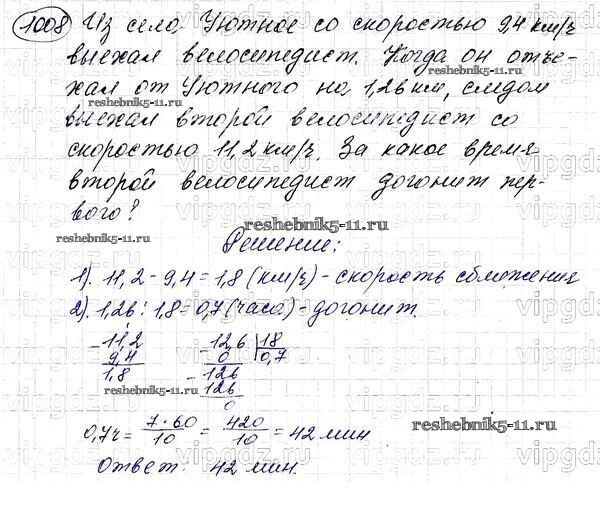 1008 Из села Уютное со скоростью 9,4 км/ч
выехал велосипедист. Когда он отъе-
хал от Уютного на 1,26 км, следом
reshebnik5-11.ru
выехал второй велосипедист со
скоростью 11,2 км/ч. За какое время
второй велосипедист догонит пер-
вого?
reshebnik5-11.ru
Решение:
1). 11,2 - 9,4 = 1,8 (км/ч) - скорость сближения
2). 1,26 : 1,8 = 0,7 (часа) - догонит.
- 11,2
9,4
1,8
- 12,6 | 18
0 | 0,7
- 126
126
0
reshebnik5-11.ru
0,7ч = 7·60/10 = 420/10 = 42 мин
reshebnik5-11.ru
Ответ: 42 мин.
vipgdz